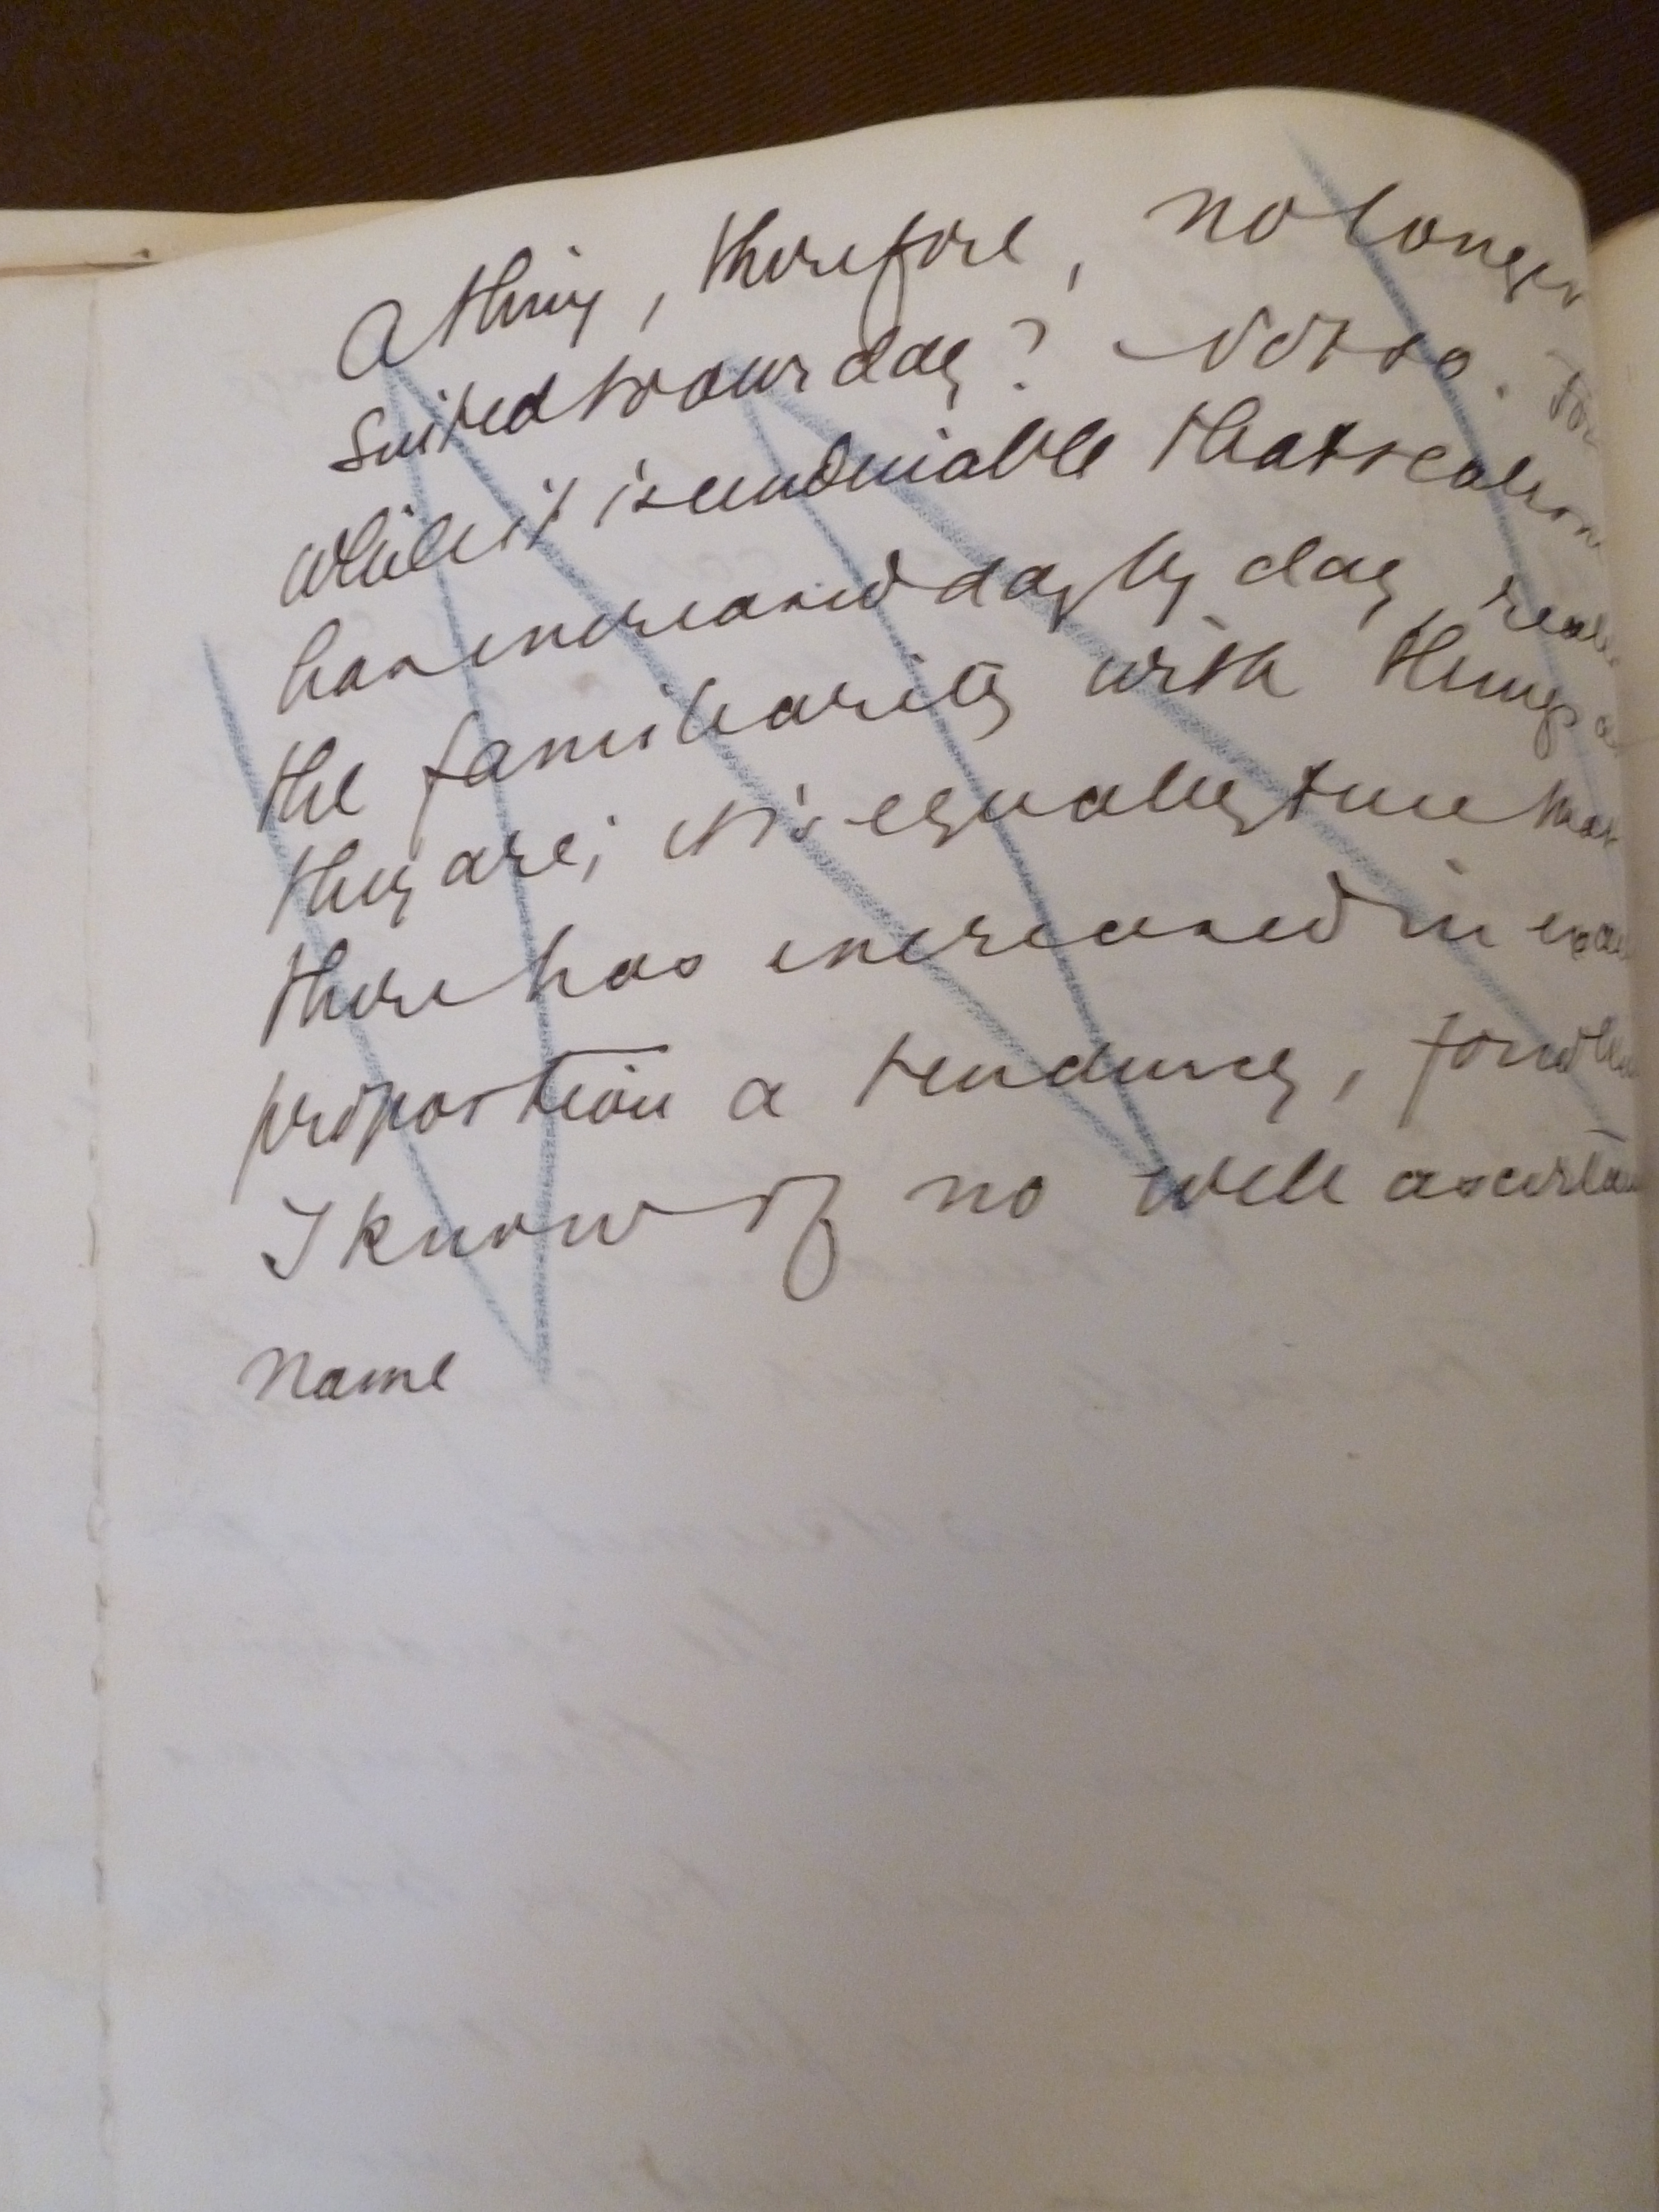 a thing, therefore, no longer
suited to our day? Not so. For
while it is undeniable that realism
has increased day by day,
the familiarity with things as
they are; it is equally true that
there has increased in exact
proportion a tendency, for which
I know of no well ascertained
name